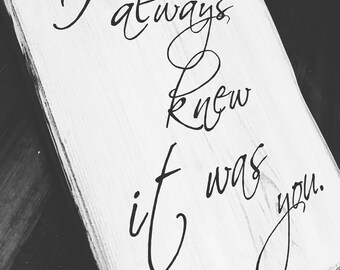 I always
knew
it was
you.